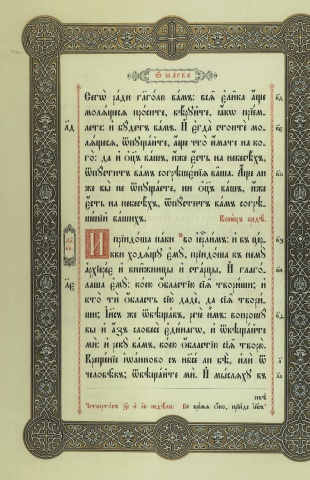 Ѿ МАРКА
Сегѡ̀ ра́ди гл҃го́лю ва́мъ: всѧ̑ є҆ли̑ка а҆́ще
молѧ́щесѧ про́сите, вѣ́рꙋйте, ꙗ҆́кѡ прїе́м-
лете: и҆ бꙋ́детъ ва́мъ. И҆ є҆гда̀ стоитѐ мо-
лѧ́щесѧ, ѿпꙋща́йте, а҆́ще что̀ и҆́мате на ко-
го̀: да и҆ ѻ҆ц҃ъ ва́шъ, и҆́же є҆́сть на нб҃сѣ́хъ,
ѿпꙋ́ститъ ва́мъ согрѣшє́нїѧ ва̑ша. А҆́ще ли
же вы̀ не ѿпꙋща́ете, ни ѻ҆ц҃ъ ва́шъ, и҆́же
є҆́сть на нб҃сѣ́хъ, ѿпꙋ́ститъ ва́мъ согрѣ-
ше́нїй ва́шихъ. Коне́цъ сꙋббѡ́тѣ.
И҆ прїидо́ша па́ки во і҆ерⷭ҇ли́мъ: и҆ въ це́р-
кви ходѧ́щꙋ є҆мꙋ̀, прїидо́ша къ немꙋ̀
а҆рхїере́є и҆ кни́жницы и҆ ста́рцы, И҆ глаго́-
лаша є҆мꙋ̀: ко́ею ѻ҆́бластїю сїѧ̑ твори́ши; и҆
кто́ ти ѻ҆́бласть сїю̀ дадѐ, да сїѧ̑ твори́-
ши; І҆и҃съ же ѿвѣща́въ, речѐ и҆̀мъ: вопрошꙋ̀
вы̀ и҆ а҆́зъ словесѐ є҆ди́нагѡ, и҆ ѿвѣща́йте
мѝ: и҆ рекꙋ̀ ва́мъ, ко́ею ѻ҆́бластїю сїѧ̑ творю̀.
Креще́нїе і҆ѡа́нново съ нб҃сѐ ли бѣ̀, и҆лѝ ѿ
человѣ̑къ; ѿвѣща́йте мѝ. И҆ мы́шлѧхꙋ въ
себѣ̀